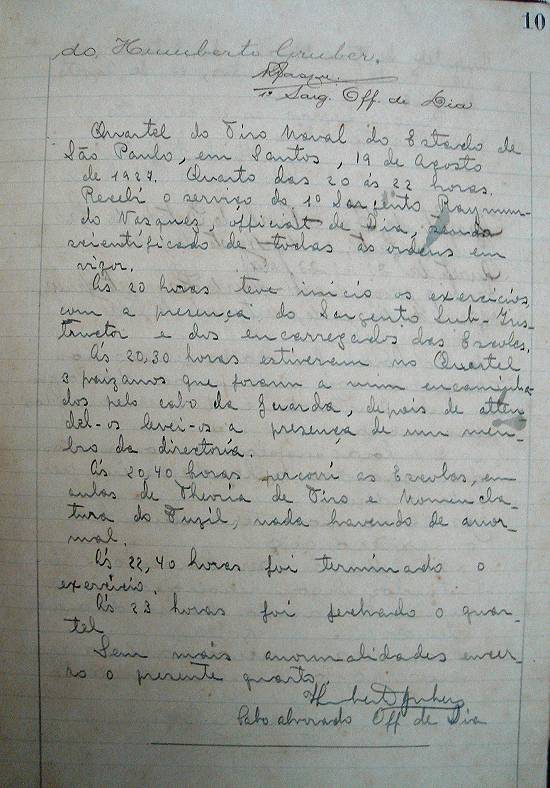 10
do Humberto Gruber.
1º Sarg. Off. de Dia
Quartel do Tiro Naval do Estado de
São Paulo, em Santos, 19 de Agosto
de 1927. Quarto das 20 ás 22 horas.
Recebi o serviço do 1º Sargento Raymun-
do Vasques, official de Dia, sendo
scientificado de todas ás ordens em
vigor.
Ás 20 horas teve inicio os exercicios,
com a presença do Sargento Sub-Ins-
tructor e dos encarregados das Escolas.
Ás 20,30 horas estiveram no Quartel
3 paizanos que foram a mim encaminha-
dos pelo cabo da Guarda, depois de atten
del-os levei-os a presença de um mem-
bro da directoria.
Ás 20,40 horas percorri as Escolas, em
aulas de Theoria de Tiro e Nomencla-
tura do Fuzil, nada havendo de anor-
mal.
Ás 22,40 horas foi terminado o
exercicio.
Ás 23 horas foi fechado o quar-
tel
Sem mais anormalidades encer-
ro o presente quarto.
Humberto Gruber
Cabo alvorado Off de Dia